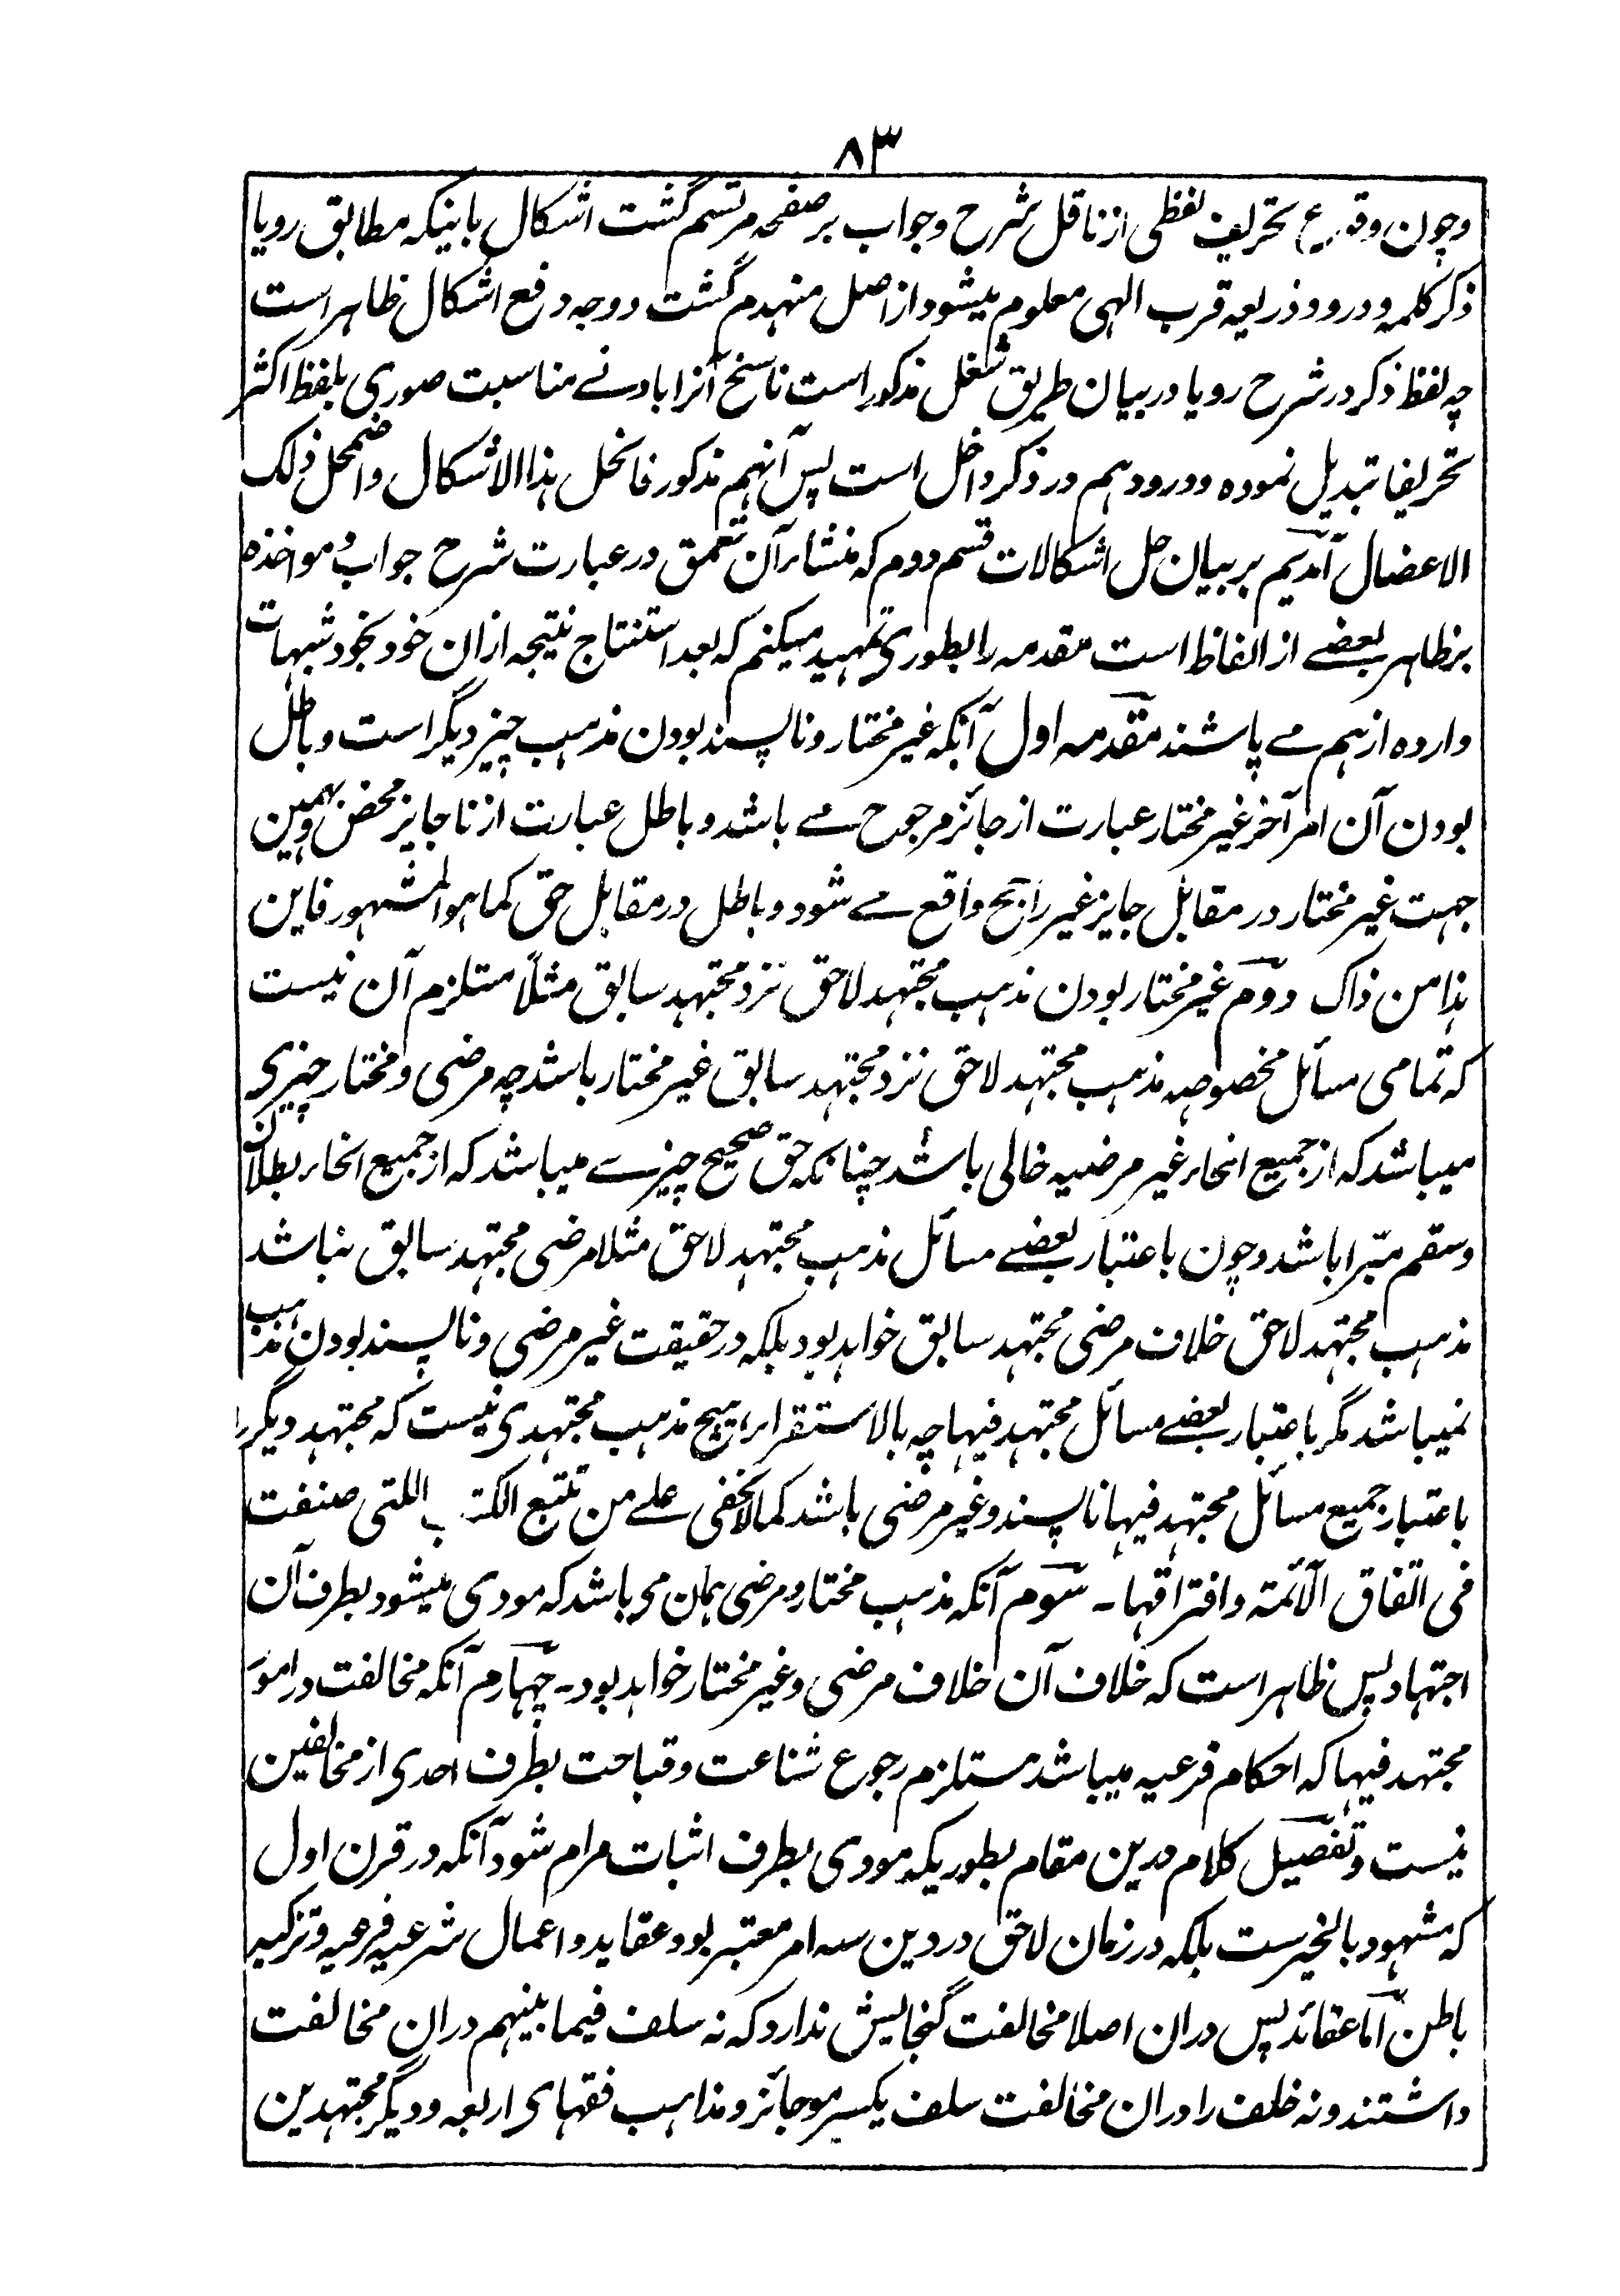 ۸۳
وچون وقوع تحریف لفظی از ناقل شرح و جواب بر صفحه مرتسم گشت اشکال باینکه مطابق رویا
ذکر کلمه و درود ذریعه قرب الهی معلوم میشود از اصل منهدم گشت و وجه دفع اشکال ظاهر است
چه لفظ ذکر در شرح رویا در بیان طریق شغل مذکور است ناسخ آنرا بادنے مناسبت صوری بلفظ اکثر
تحریفا تبدیل نموده و درود هم در ذکر داخل است پس آنهم مذکور فانحل هذا الاشکال واضمحل ذلک
الاعضال آمدیم بر بیان حل اشکالات قسم دوم که منشاء آن تعمق در عبارت شرح جواب و مواخذه
بظاهر بعضے از الفاظ است مقدمه را بطوری تمهید میکنم که بعد استنتاج نتیجه ازان خود بخود شبهات
وارده از هم مے پاشند مقدمه اول آنکه غیر مختار و ناپسند بودن مذهب چیز دیگر است و باطل
بودن آن امر آخر غیر مختار عبارت از جائز مرجوح مے باشد و باطل عبارت از ناجایز محض و بهمین
جهت غیر مختار در مقابل جایز غیر راجح واقع مے شود و باطل در مقابل حق کما هو المشهور فاین
هذا من ذاک دوم غیر مختار بودن مذهب مجتهد لاحق نزد مجتهد سابق مثلاً مستلزم آن نیست
که تمامی مسائل مخصوصه مذهب مجتهد لاحق نزد مجتهد سابق غیر مختار باشد چه مرضی و مختار چیزی
میباشد که از جمیع انحاء غیر مرضیه خالی باشد چنانکه حق صحیح چیزے میباشد که از جمیع انحاء بطلان
و سقم مبّرا باشد و چون باعتبار بعضے مسائل مذهب مجتهد لاحق مثلا مرضی مجتهد سابق نباشد
مذهب مجتهد لاحق خلاف مرضی مجتهد سابق خواهد بود بلکه در حقیقت غیر مرضی و ناپسند بودن مذهب
نمیباشد مگر باعتبار بعضے مسائل مجتهد فیها چه بالاستقراء هیچ مذهب مجتهدی نیست که مجتهد دیگر را
باعتبار جمیع مسائل مجتهد فیها ناپسند و غیر مرضی باشد کما لا یخفی علے من تتبع الکتب اللتی صنفت
فی اتفاق الآئمة وافتراقها۔ سوم آنکه مذهب مختار و مرضی همان می باشد که مودی میشود بطرف آن
اجتهاد پس ظاهر است که خلاف آن خلاف مرضی و غیر مختار خواهد بود۔ چهارم آنکه مخالفت در امور
مجتهد فیها که احکام فرعیه میباشد مستلزم رجوع شناعت و قباحت بطرف احدی از مخالفین
نیست و تفصیل کلام درین مقام بطوریکه مودی بطرف اثبات مرام شود آنکه در قرن اول
که مشهود بالخیرست بلکه در زمان لاحق در دین سه امر معتبر بود عقاید و اعمال شرعیه فرعیه و تزکیه
باطن آما عقائد پس دران اصلا مخالفت گنجایش ندارد که نه سلف فیما بینهم دران مخالفت
داشتند و نه خلف را دران مخالفت سلف یکسر مو جائز و مذاهب فقهای اربعه و دیگر مجتهدین